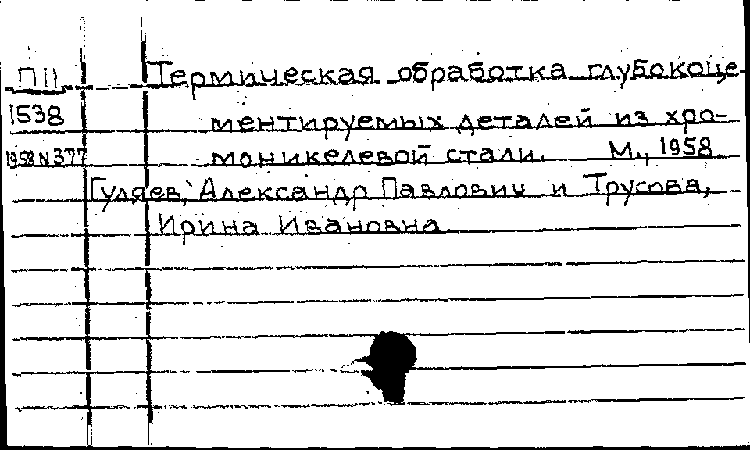 П11 Термическая обработка глубокоце-
1538 ментируемых деталей из хро-
1958 N 377 моникелевой стали. М., 1958
Гуляев, Александр Павлович и Трусова,
Ирина Ивановна